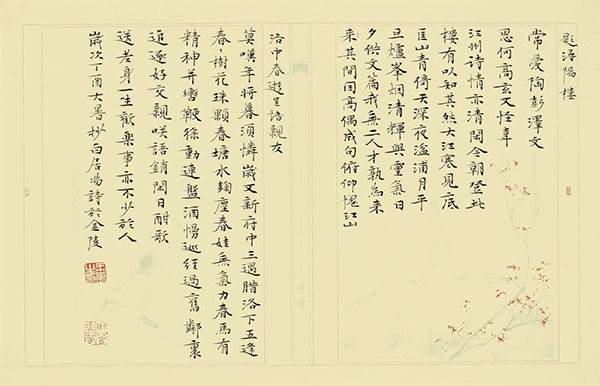 題潯陽樓
常愛陶彭澤文
思何高玄又怪韋
江州詩情亦清閑今朝登此
樓有以知其然大江寒見底
匡山青倚天深夜湓浦月平
旦爐峯烟清輝與靈氣日
夕供文篇我無二人才孰爲來
來其間因高偶成句俯仰愧江山
洛中春遊呈諸親友
莫嘆年將暮須憐歲又新府中三遇臘洛下五逢
春〻樹花珠顆春塘水麴塵春娃無氣力春馬有
精神並轡鞭徐動連盤酒慢巡經過舊鄰裏
追逐好交親咲語銷閑日酣歌
送老身一生歡樂事亦不少於人
歲次丁酉大暑抄白居易詩於金陵